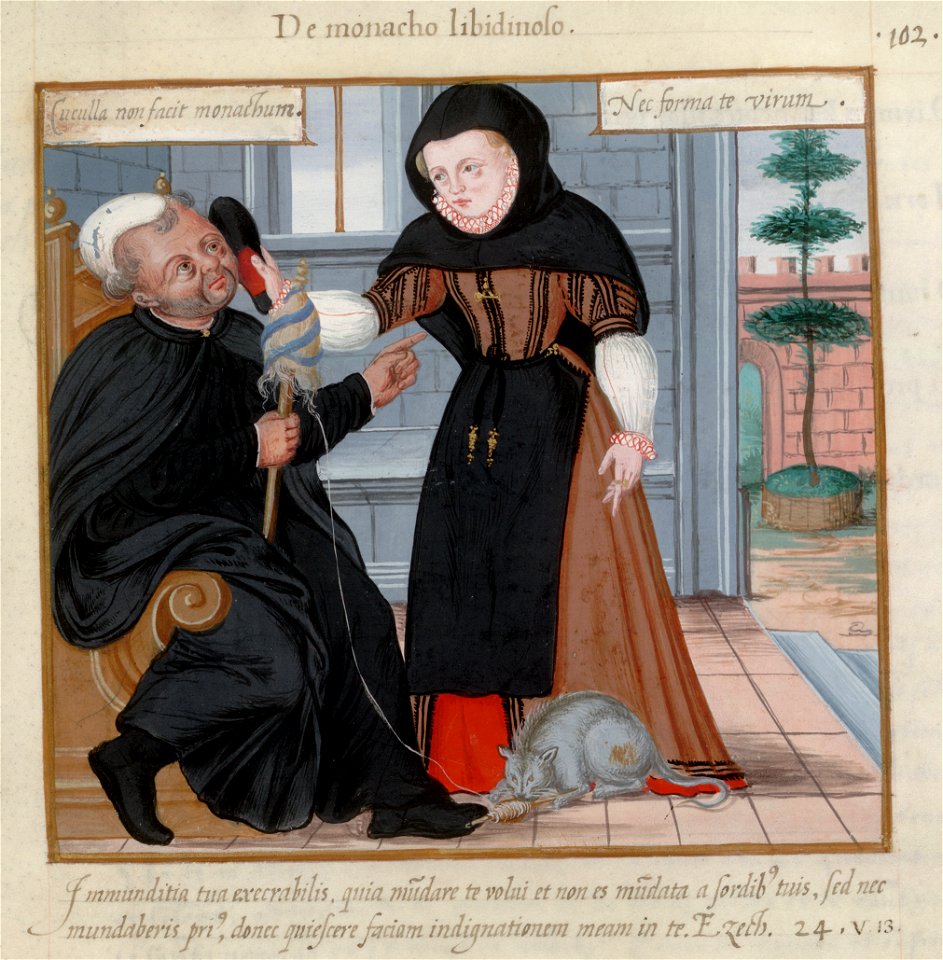 De monacho libidinoso.
.102.
Cuculla non facit monachum.
Nec forma te virum.
Immunditia tua execrabilis, quia mūdare te volui et non es mūdata a sordibꝰ tuis, sed nec
mundaberis priꝰ, donec quiescere faciam indignationem meam in te. Ezech. 24. v 13.